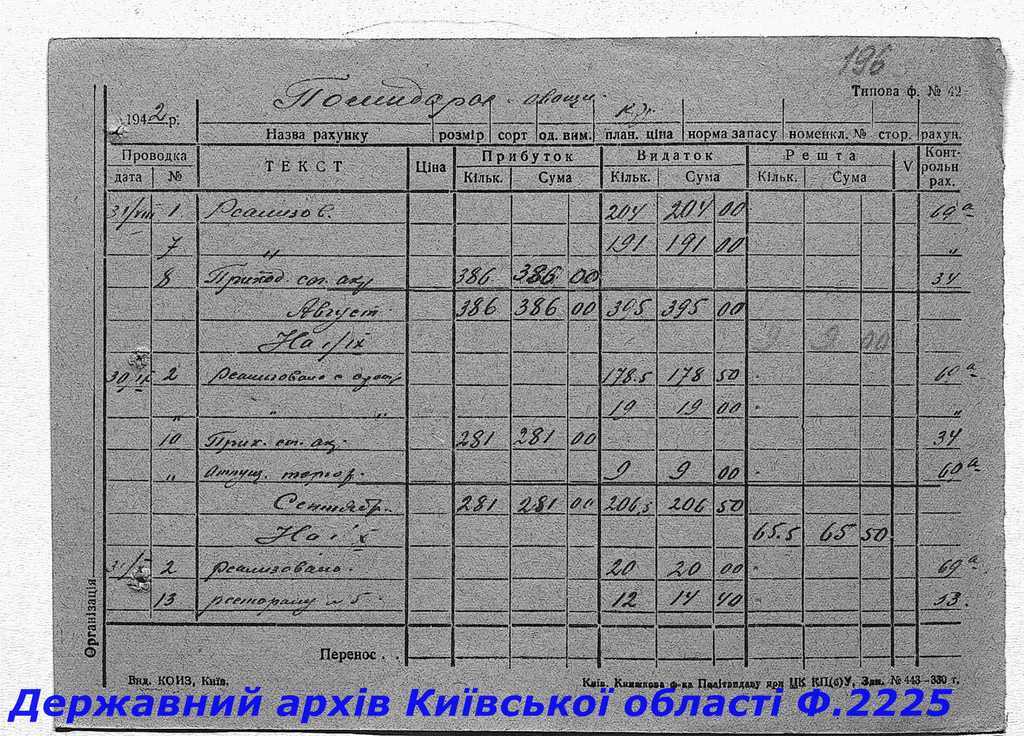 196
Типова ф. № 42
Помидоры овощи кг
1942 р.
Назва рахунку розмір сорт од. вим. план. ціна норма запасу номенкл. № стор. рахун.
Проводка ТЕКСТ Ціна Прибуток Видаток Решта V Контрольн рах.
дата № Кільк. Сума Кільк. Сума Кільк. Сума
31/VIII 1 Реализов. 204 204 00 69а
7 " 191 191 00 "
8 386 386 00 34
Август 386 386 00 395 395 00
На 1/IX 9 9 00
30 IX 2 Реализовано 178.5 178 50 69а
" " " 19 19 00 "
10 Прих. 281 281 00 34
" Отпущ. 9 9 00 69а
Сентябр. 281 281 00 206.5 206 50
На 1 X 65.5 65 50
31/X 2 реализовано. 20 20 00 69а
13 ресторану № 5 12 14 40 53.
Організація
Перенос . .
Вид. КОИЗ, Київ.
Київ. Книжкова ф-ка Політвидаву при ЦК КП(б)У, Зам. № 443—330 г.
Державний архів Київської області Ф.2225